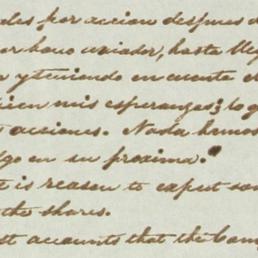 les por accion despues d
or hono aviador, hasta lleg
y teniendo en cuenta el
mis esperanzas; lo q
acciones. Nada hemos
go en su proxima."
t is reason to expect som
the shares.
st accounts that the Com